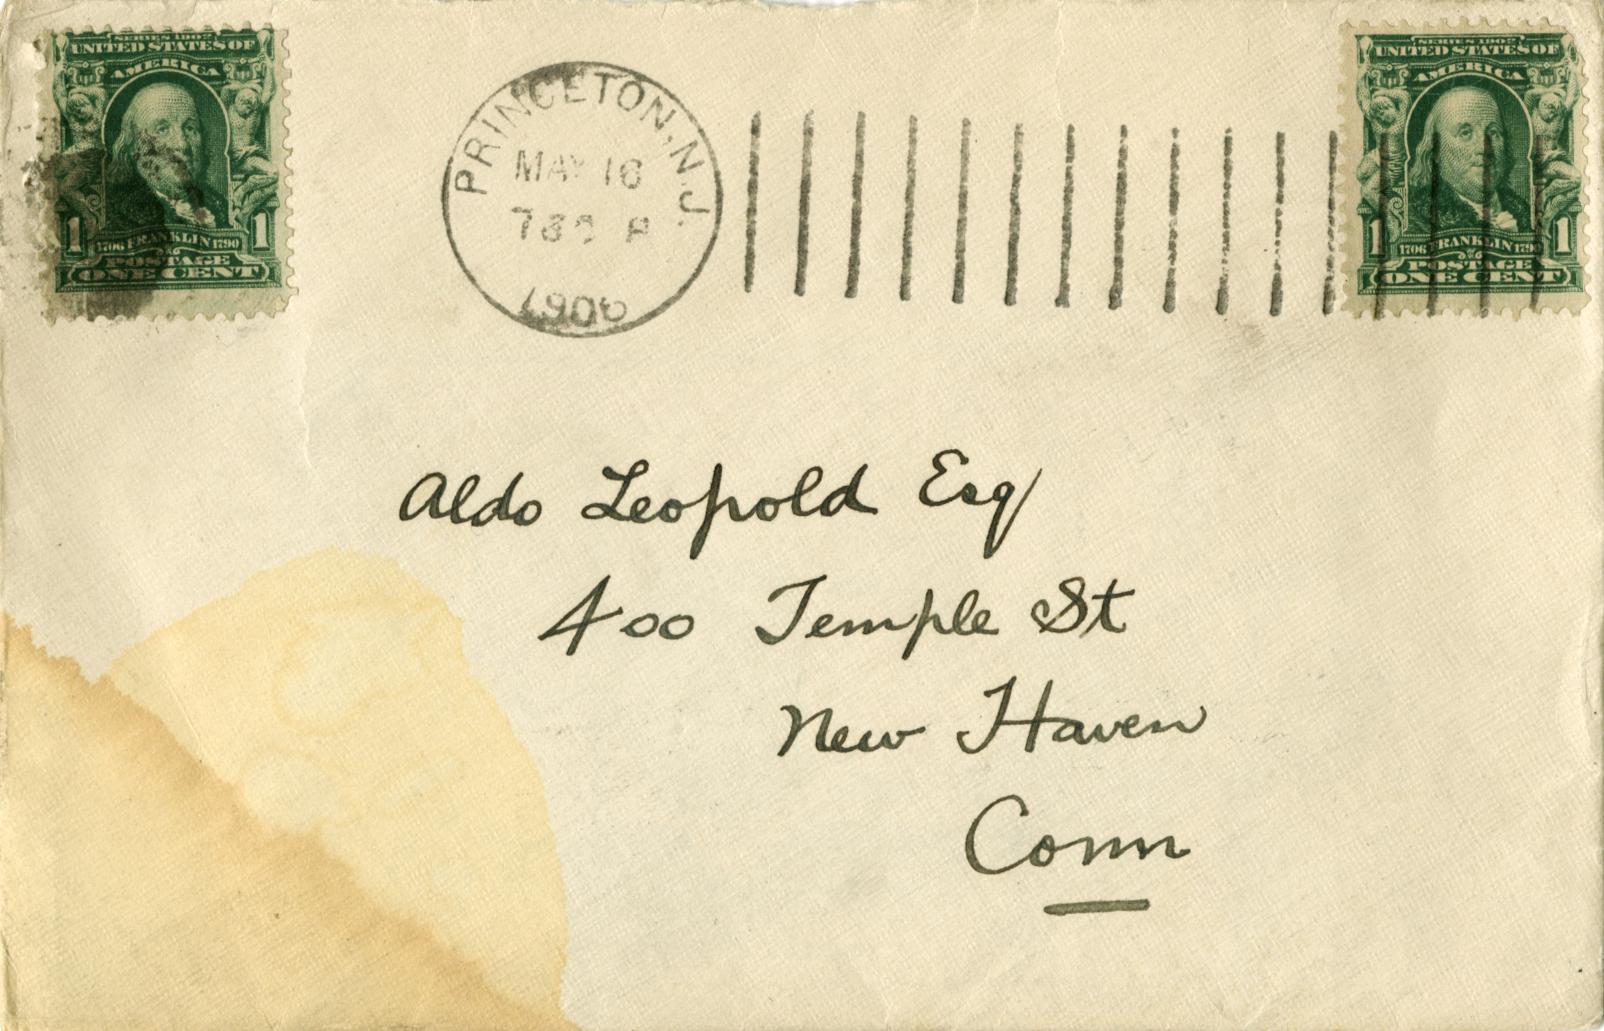 SERIES 1902
UNITED STATES OF
AMERICA
1 1
1706 FRANKLIN 1790
POSTAGE
ONE CENT
PRINCETON, N.J.
MAY 16
1906
SERIES 1902
UNITED STATES OF
AMERICA
1 1
1706 FRANKLIN 1790
POSTAGE
ONE CENT
Aldo Leopold Esq
400 Temple St
New Haven
Conn